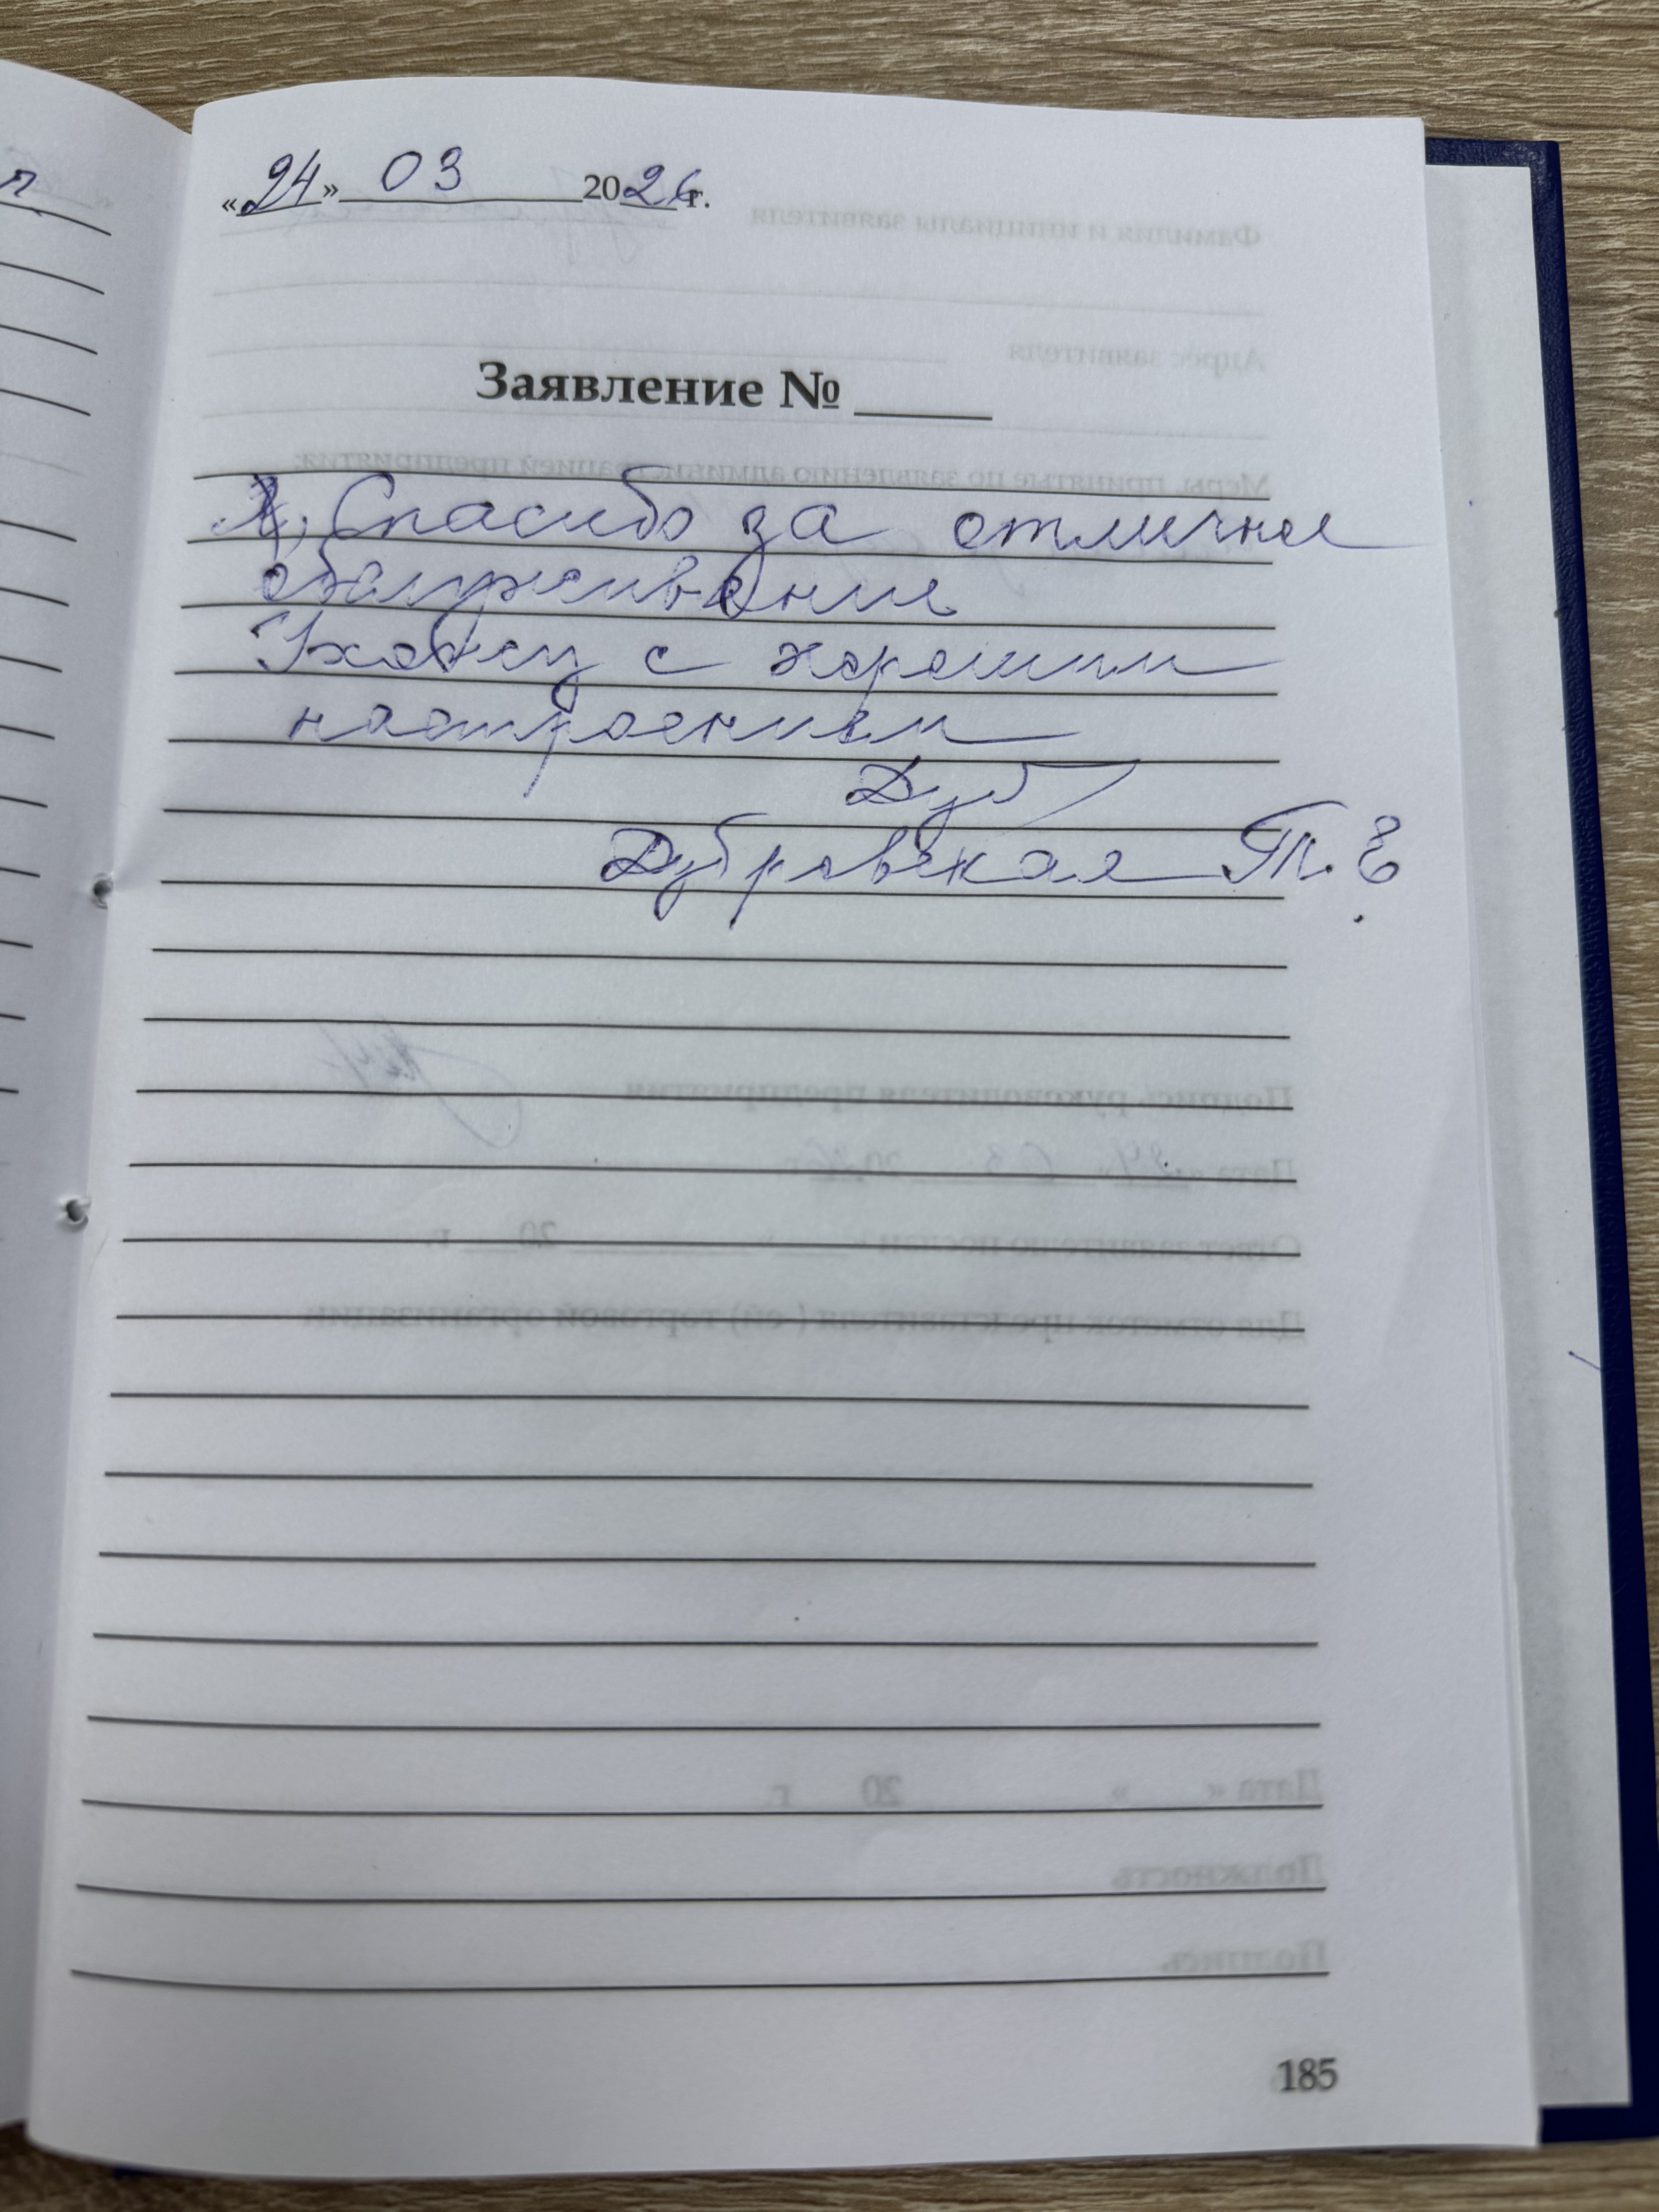 «24» 03 2026 г.
Заявление №
Спасибо за отличное
обслуживание
Ухожу с хорошим
настроением
Дуб
Дубровская Т. Е.
185